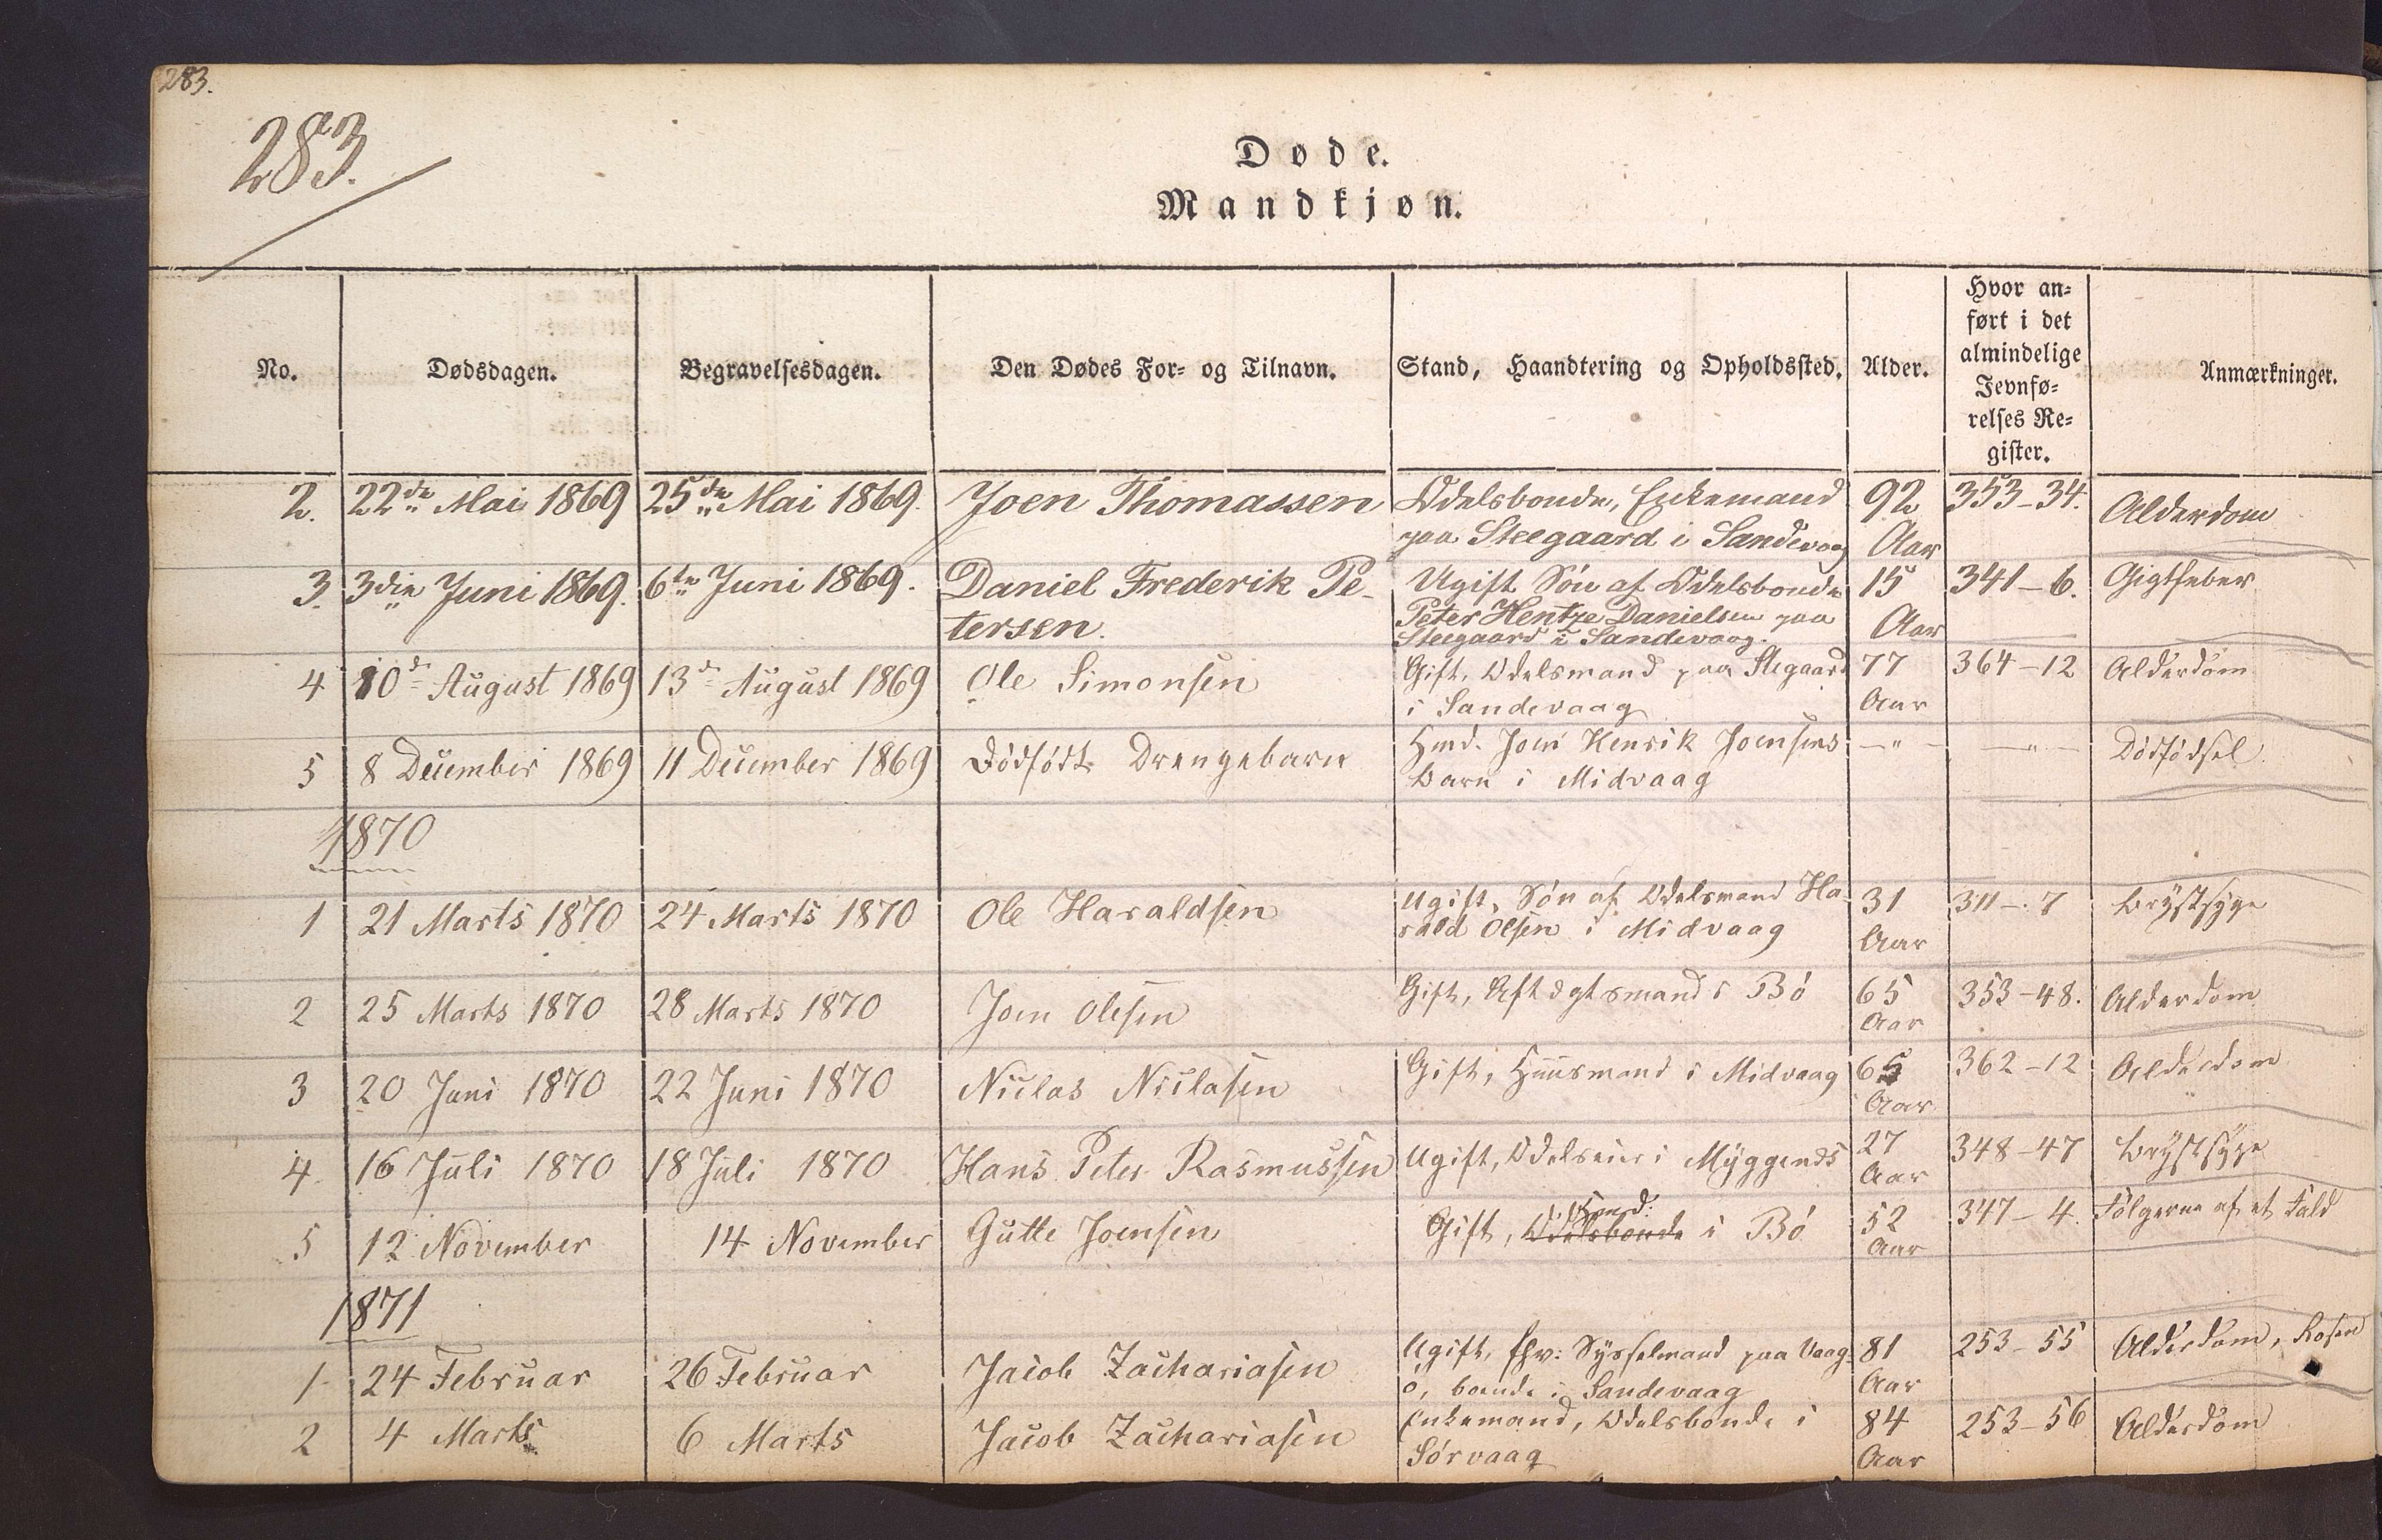 283.
283.
Døde.
Mandkjøn.
No. Dødsdagen. Begravelsesdagen. Den Dødes For- og Tilnavn. Stand, Haandtering og Opholdssted. Alder. Hvor an-
ført i det
almindelige
Jevnfø-
relses Re-
gister. Anmærkninger.
2. 22de Mai 1869 25de Mai 1869. Joen Thomassen Odelsbonde, Enkemand 92 353-34. Alderdom
paa Steegaard i Sandevaag Aar
3. 3die Juni 1869. 6te Juni 1869. Daniel Frederik Pe- Ugift Søn af Odelsbonde 15 341-6. Gigtfeber
tersen. Peter Hentze Danielsen paa Aar
Steegaard i Sandevaag.
4 10de August 1869 13de August 1869 Ole Simonsen Gift, Odelsmand paa Stegaard 77 364-12 Alderdom
i Sandevaag Aar
5 8 December 1869 11 December 1869 Dødfødt Drengebarn Hmd. Joen Henrik Joensens -"- -"- Dødfødsel.
Barn i Midvaag
1870
1 21 Marts 1870 24 Marts 1870 Ole Haraldsen Ugift, Søn af Odelsmand Ha- 31 311-7 Brystsyge
rald Olsen i Midvaag Aar
2 25 Marts 1870 28 Marts 1870 Joen Olesen Gift, Aftægtsmand i Bø 65 353-48. Alderdom
Aar
3 20 Juni 1870 22 Juni 1870 Niclas Niclasen Gift, Huusmand i Midvaag 65 362-12 Alderdom
Aar
4. 16 Juli 1870 18 Juli 1870 Hans Peter Rasmussen Ugift, Odelseier i Myggenæs 27 348-47 Brystsyge
Aar
Hmd:
5 12 November 14 November Gutte Joensen Gift, Odelsbonde i Bø 52 347-4. Følgerne af et Fald
Aar
1871
1 24 Februar 26 Februar Jacob Zachariasen Ugift, fhv: Sysselmand paa Vaag- 81 253-55 Alderdom, Rosen
ø, boende i Sandevaag Aar
2 4 Marts 6 Marts Jacob Zachariasen Enkemand, Odelsbonde i 84 253-56 Alderdom
Sørvaag Aar